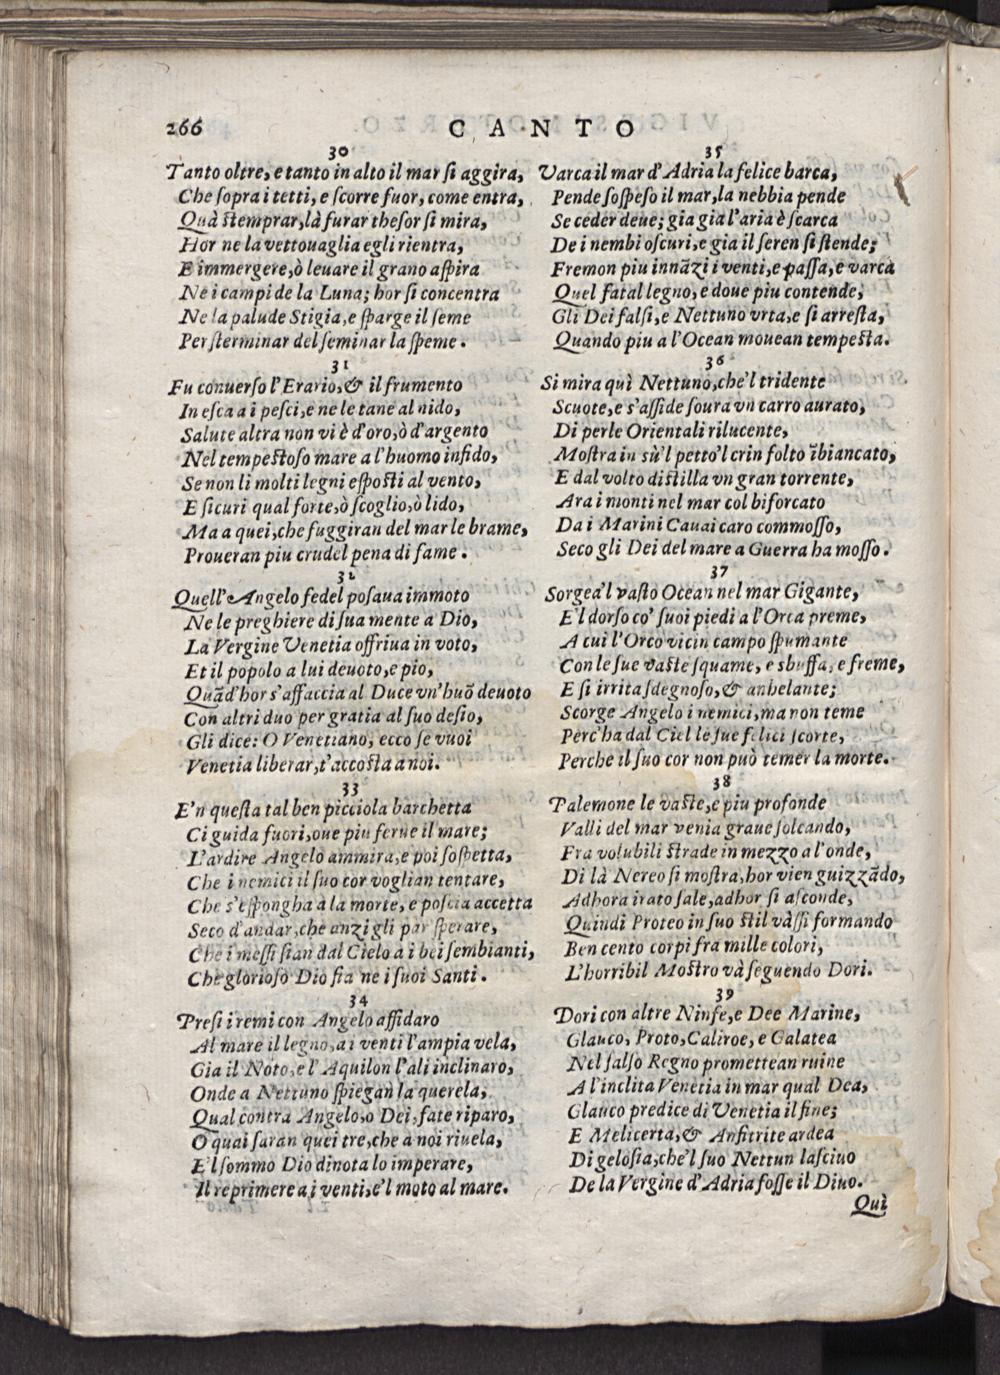 266
CANTO
30
Tanto oltre, e tanto in alto il mar ſi aggira,
Che ſopra i tetti, e ſcorre fuor, come entra,
Quà ſtemprar, là furar theſor ſi mira,
Hor ne la vettouaglia egli rientra,
E immergere, ò leuare il grano aſpira
Ne i campi de la Luna; hor ſi concentra
Ne la palude Stigia, e ſparge il ſeme
Per ſterminar del ſeminar la ſpeme.
31
Fu conuerſo l'Erario, & il frumento
In eſca a i peſci, e ne le tane al nido,
Salute altra non vi è d'oro, ò d'argento
Nel tempeſtoſo mare a l'huomo infido,
Se non li molti legni eſpoſti al vento,
E ſicuri qual forte, ò ſcoglio, ò lido,
Ma a quei, che fuggiran del mar le brame,
Proueran piu crudel pena di fame.
32
Quell'Angelo fedel poſaua immoto
Ne le preghiere di ſua mente a Dio,
La Vergine Venetia offriua in voto,
Et il popolo a lui deuoto, e pio,
Quãd'hor s'affaccia al Duce vn'huõ deuoto
Con altri duo per gratia al ſuo deſio,
Gli dice: O Venetiano, ecco ſe vuoi
Venetia liberar, t'accoſta a noi.
33
E'n queſta tal ben picciola barchetta
Ci guida fuori, oue piu ferue il mare;
L'ardire Angelo ammira, e poi ſoſpetta,
Che i nemici il ſuo cor voglian tentare,
Che s'eſpongha a la morte, e poſcia accetta
Seco d'andar, che anzi gli par ſperare,
Che i meſſi ſian dal Cielo a i bei ſembianti,
Che glorioſo Dio fia ne i ſuoi Santi.
34
Preſi i remi con Angelo affidaro
Al mare il legno, a i venti l'ampia vela,
Gia il Noto, e l'Aquilon l'ali inclinaro,
Onde a Nettuno ſpiegan la querela,
Qual contra Angelo, o Dei, fate riparo,
O quai ſaran quei tre, che a noi riuela,
E'l ſommo Dio dinota lo imperare,
Il reprimere a i venti, e'l moto al mare.
35
Varca il mar d'Adria la felice barca,
Pende ſoſpeſo il mar, la nebbia pende
Se ceder deue; gia gia l'aria è ſcarca
De i nembi oſcuri, e gia il ſeren ſi ſtende;
Fremon piu innãzi i venti, e paſſa, e varca
Quel fatal legno, e doue piu contende,
Gli Dei falſi, e Nettuno vrta, e ſi arreſta,
Quando piu a l'Ocean mouean tempeſta.
36
Si mira quì Nettuno, che'l tridente
Scuote, e s'aſſide ſoura vn carro aurato,
Di perle Orientali rilucente,
Moſtra in ſù'l petto'l crin folto ĩbiancato,
E dal volto diſtilla vn gran torrente,
Ara i monti nel mar col biforcato
Da i Marini Cauai caro commoſſo,
Seco gli Dei del mare a Guerra ha moſſo.
37
Sorgea'l vaſto Ocean nel mar Gigante,
E'l dorſo co' ſuoi piedi a l'Orca preme,
A cui l'Orco vicin campo ſpumante
Con le ſue vaſte ſquame, e sbuffa, e freme,
E ſi irrita ſdegnoſo, & anhelante;
Scorge Angelo i nemici, ma non teme
Perc'ha dal Ciel le ſue felici ſcorte,
Perche il ſuo cor non può temer la morte.
38
Palemone le vaſte, e piu profonde
Valli del mar venia graue ſolcando,
Fra volubili ſtrade in mezzo a l'onde,
Di là Nereo ſi moſtra, hor vien guizzãdo,
Ad hora irato ſale, ad hor ſi aſconde,
Quindi Proteo in ſuo ſtil vàſſi formando
Ben cento corpi fra mille colori,
L'horribil Moſtro và ſeguendo Dori.
39
Dori con altre Ninfe, e Dee Marine,
Glauco, Proto, Caliroe, e Galatea
Nel ſalſo Regno promettean ruine
A l'inclita Venetia in mar qual Dea,
Glauco predice di Venetia il fine;
E Melicerta, & Anfitrite ardea
Di geloſia, che'l ſuo Nettun laſciuo
De la Vergine d'Adria foſſe il Diuo.
Quì